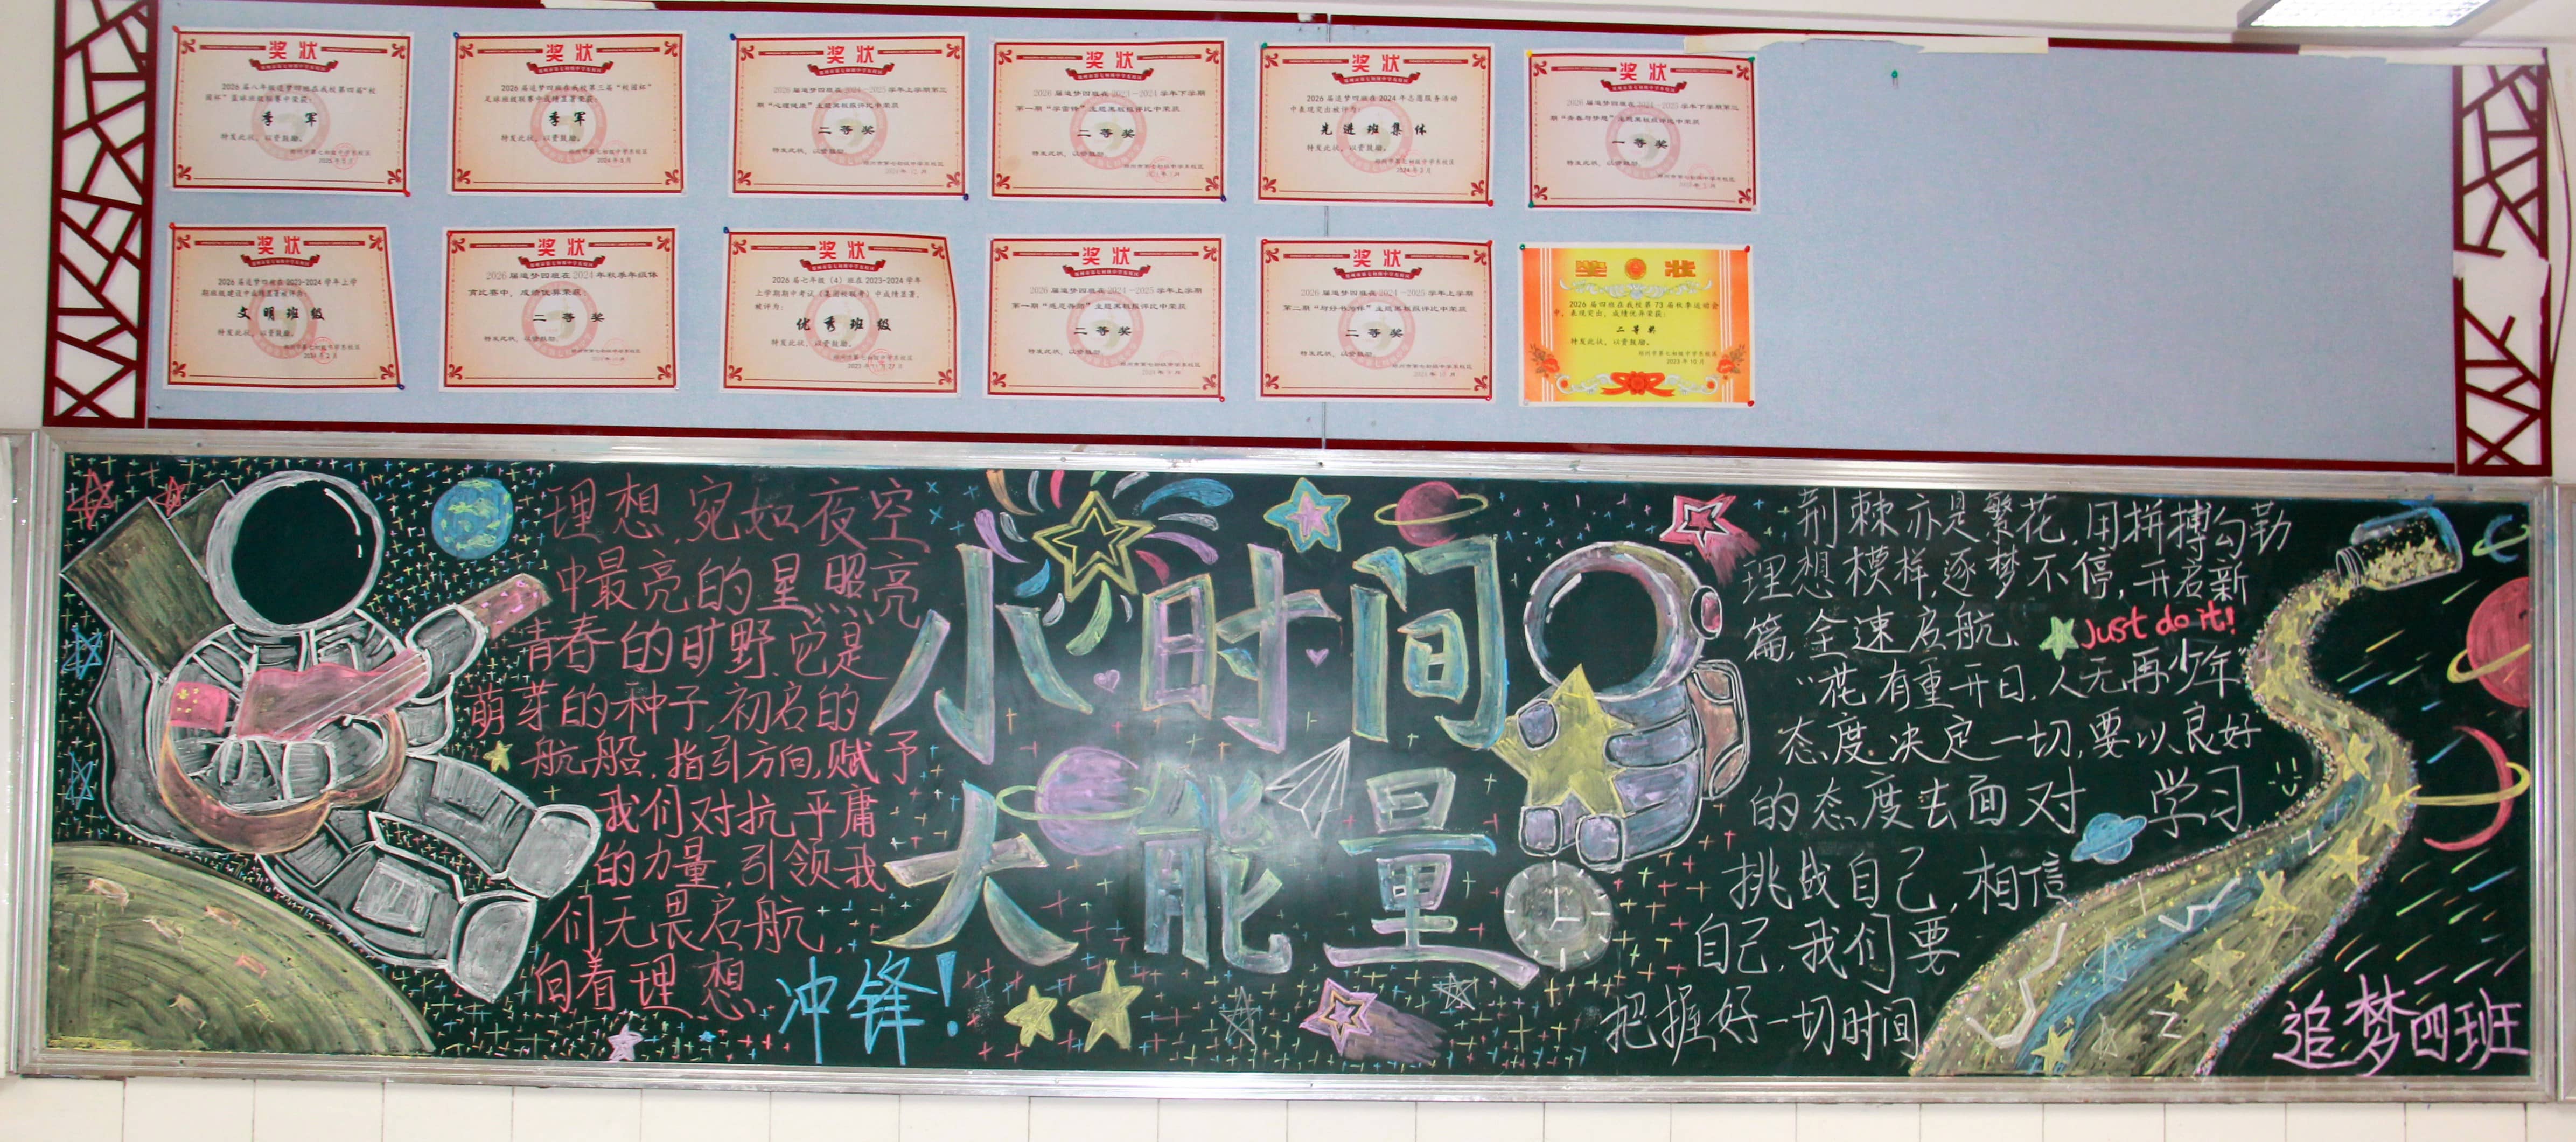 奖状
2026届八年级追梦四班在我校第四届“校
园杯”篮球班级联赛中荣获:
季军
特发此状，以资鼓励。
奖状
2026届追梦四班在我校第三届“校园杯”
足球班级联赛中成绩显著荣获:
季军
特发此状，以资鼓励。
2024年6月
奖状
2026届追梦四班在2024-2025学年上学期第三
期“心理健康”主题黑板报评比中荣获
二等奖
特发此状，以资鼓励。
2024年12月
奖状
2026届追梦四班在2023-2024学年下学期
第一期“学雷锋”主题黑板报评比中荣获
二等奖
特发此状，以资鼓励。
奖状
2026届追梦四班在2024年志愿服务活动
中表现突出被评为:
先进班集体
特发此状，以资鼓励。
2024年3月
奖状
2026届追梦四班在2024-2025学年下学期第三
期“青春与梦想”主题黑板报评比中荣获
一等奖
特发此状，以资鼓励。
奖状
2026届追梦四班在2023-2024学年上学
期班级建设中成绩显著被评为:
文明班级
特发此状，以资鼓励。
奖状
2026届追梦四班在2024年秋季年级体
育比赛中，成绩优异荣获:
二等奖
特发此状，以资鼓励。
奖状
2026届七年级（4）班在2023-2024学年
上学期期中考试（集团校联考）中成绩显著，
被评为:
优秀班级
特发此状，以资鼓励。
2023年11月23日
奖状
2026届追梦四班在2024-2025学年上学期
第一期“感恩养师”主题黑板报评比中荣获
二等奖
特发此状，以资鼓励。
奖状
2026届追梦四班在2024-2025学年上学期
第二期“与好书为伴”主题黑板报评比中荣获
二等奖
特发此状，以资鼓励。
奖状
2026届四班在我校第73届秋季运动会
中，表现突出，成绩优异荣获:
二等奖
特发此状，以资鼓励。
郑州市第七初级中学东校区
2025年10月
理想，宛如夜空
中最亮的星照亮
青春的旷野，它是
萌芽的种子，初启的
航船，指引方向，赋予
我们对抗平庸
的力量，引领我
们无畏启航，
向着理想
冲锋！
小时间
大能量
荆棘亦是繁花，用拼搏勾勒
理想模样，逐梦不停，开启新
篇，全速启航、
Just do it!
“花有重开日，人无再少年”
态度决定一切，要以良好
的态度去面对 学习
挑战自己，相信
自己，我们要
把握好一切时间
追梦四班